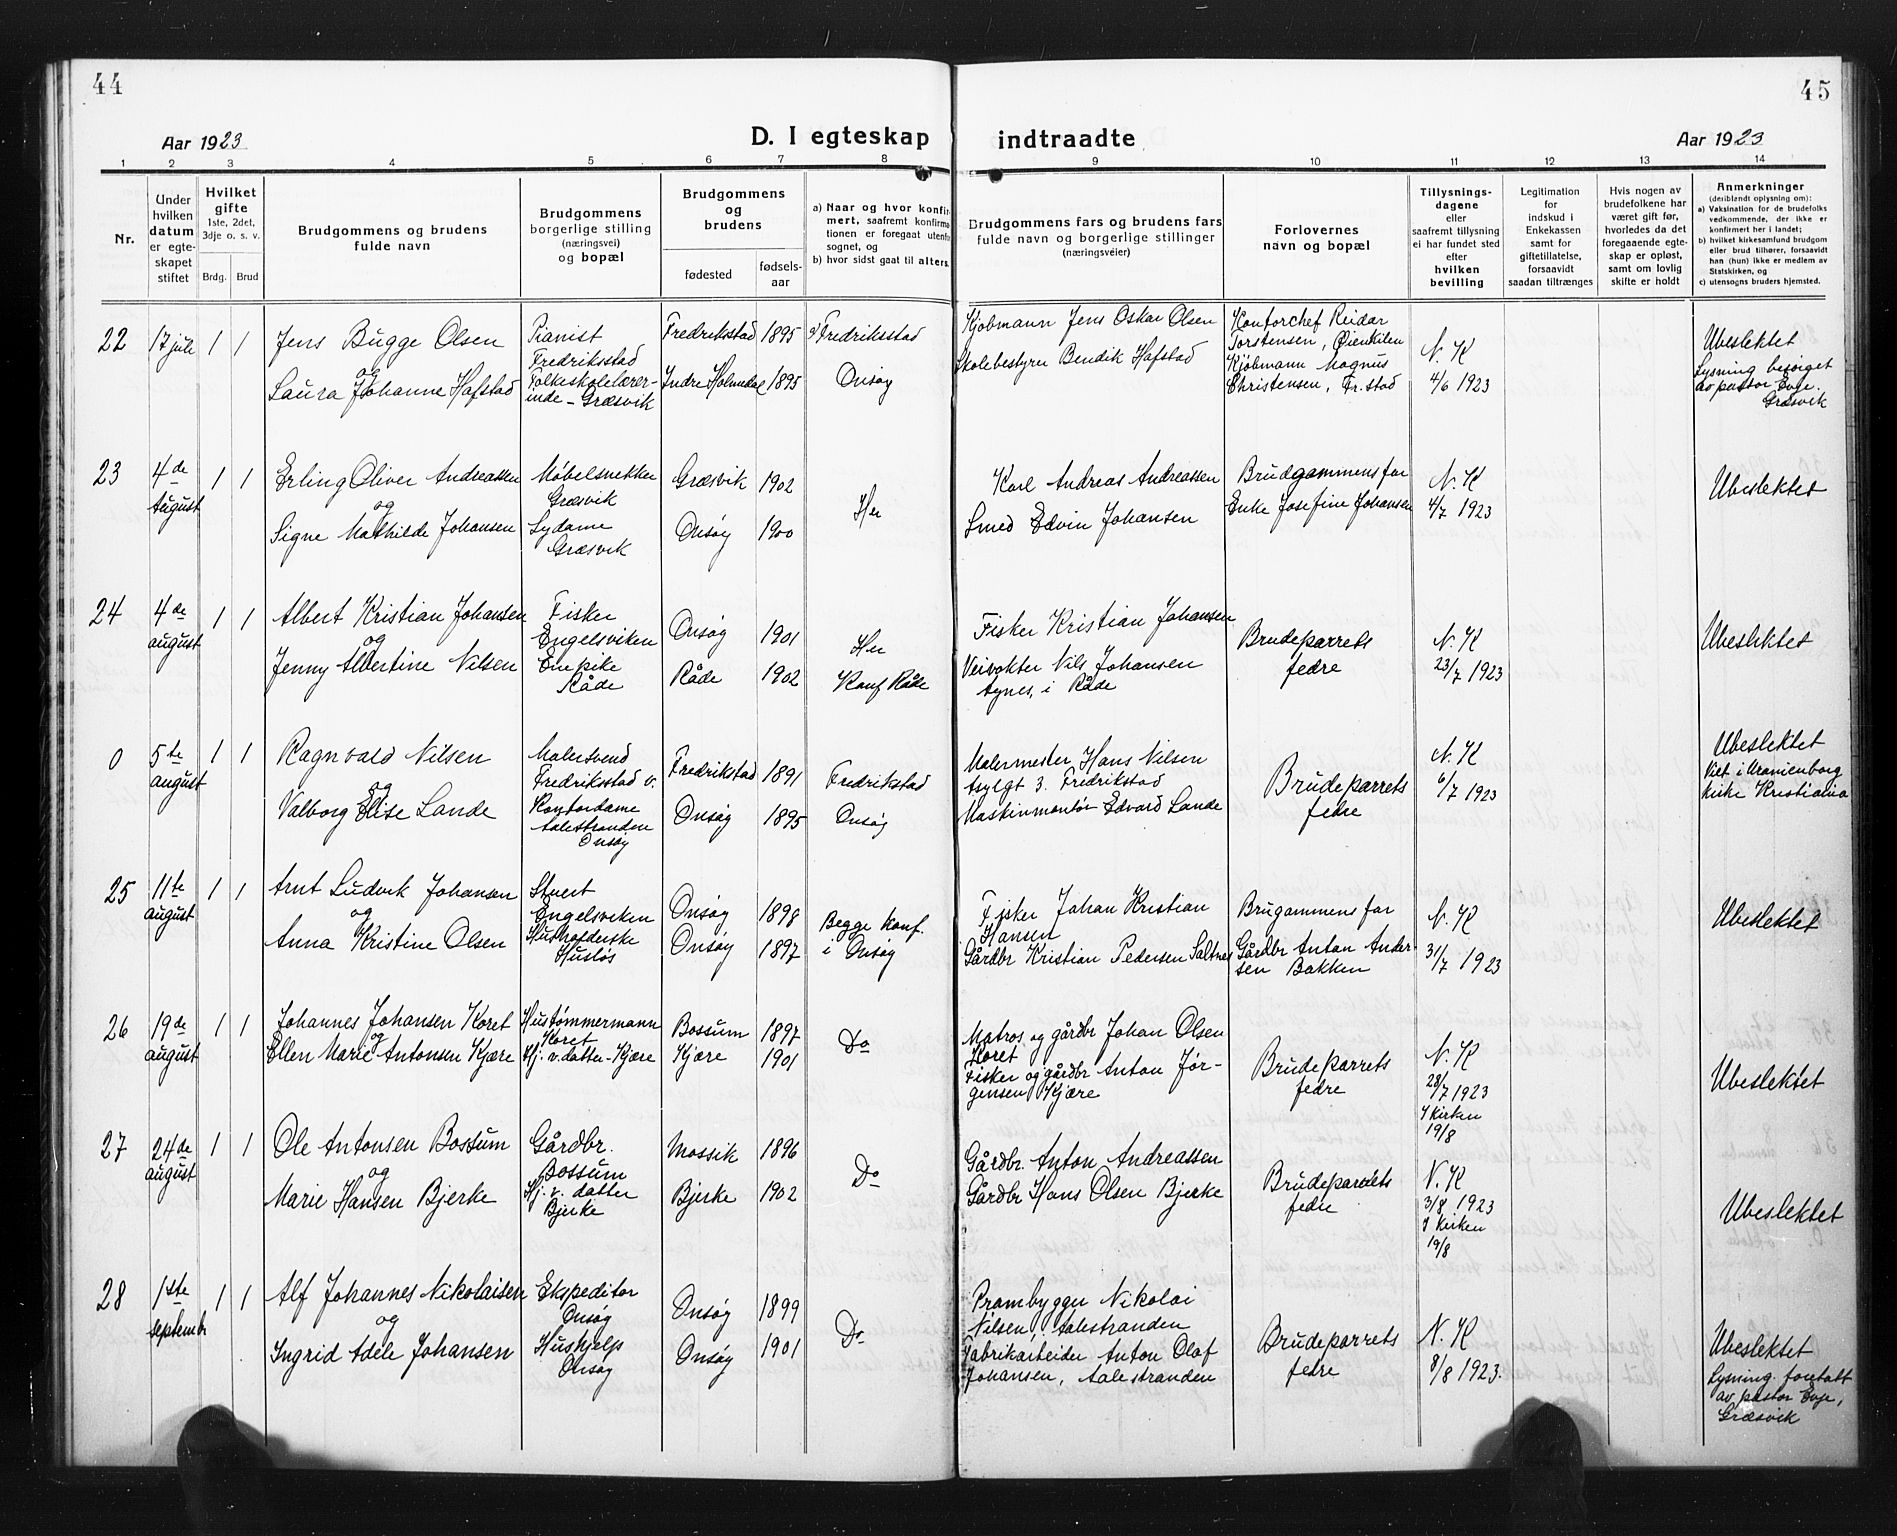 44
45
Aar 1923
D. I egteskap indtraadte
Aar 1923
1 2 3 4 5 6 7 8 9 10 11 12 13 14
Nr.
Under
hvilken
datum
er egte-
skapet
stiftet
Hvilket
gifte
1ste, 2det,
3dje o. s. v.
Brdg. Brud
Brudgommens og brudens
fulde navn
Brudgommens
borgerlige stilling
(næringsvei)
og bopæl
Brudgommens
og
brudens
fødested
fødsels-
aar
a) Naar og hvor konfir-
mert, saafremt konfirma-
tionen er foregaat utenfor
sognet, og
b) hvor sidst gaat til alters.
Brudgommens fars og brudens fars
fulde navn og borgerlige stillinger
(næringsveier)
Forlovernes
navn og bopæl
Tillysnings-
dagene
eller
saafremt tillysning
ei har fundet sted
efter
hvilken
bevilling
Legitimation
for
indskud i
Enkekassen
samt for
giftetillatelse,
forsaavidt
saadan tiltrænges
Hvis nogen av
brudefolkene har
været gift før,
hvorledes da det
foregaaende egte-
skap er opløst,
samt om lovlig
skifte er holdt
Anmerkninger
(deriblandt oplysning om):
a) Vaksination for de brudefolks
vedkommende, der ikke er
konfirmert her i landet;
b) hvilket kirkesamfund brudgom
eller brud tilhører, forsaavidt
han (hun) ikke er medlem av
Statskirken, og
c) utensogns bruders hjemsted.
22
17 juli
1 1
Jens Bugge Olsen
og
Laura Johanne Hafstad
Pianist
Fredriksstad
Folkeskolelærer-
inde - Græsvik
Fredrikstad 1895
Indre Holmedal 1895
a) Fredriksstad
Onsøy
Kjøbmann Jens Oskar Olsen
Skolebestyrer Bendik Hafstad
Kontorchef Reidar
Torstensen, Øienkilen
Kjøbmann Magnus
Christensen, Fr.stad
N. K
4/6 1923
Ubeslektet
Lysning besørget
av pastor Evje.
Græsvik
23
4de
August
1 1
Erling Oliver Andreassen
og
Signe Mathilde Johansen
Møbelsnekker
Græsvik
Sydame
Græsvik
Græsvik 1902
Onsøy 1900
Her
Karl Andreas Andreassen
Smed Edvin Johansen
Brudgommens far
Enke Josefine Johansen
N. K
4/7 1923
Ubeslektet
24
4de
august
1 1
Albert Kristian Johansen
og
Jenny Albertine Nilsen
Fisker
Engelsviken
Enepike
Råde
Onsøy 1901
Råde 1902
Her
Konf Råde
Fisker Kristian Johansen
Veivokter Nils Johansen
Agnes, i Råde
Brudeparrets
fedre
N. K
23/7 1923
Ubeslektet
0
5te
august
1 1
Ragnvald Nilsen
og
Valborg Elise Lande
Malersvend
Fredriksstad v.
Kontordame
Aalestranden
Onsøy
Fredrikstad 1891
Onsøy 1895
Fredrikstad
Onsøy
Malermester Hans Nilsen
Asylgt 3. Fredrikstad
Maskinmontør Edvard Lande
Brudeparrets
fedre
N. K
6/7 1923
Ubeslektet
Viet i Uranienborg
kirke Kristiania
25
11te
august
1 1
Arnt Ludvik Johansen
og
Anna Kristine Olsen
Stuert
Engelsviken
Husholderske
Husløs
Onsøy 1898
Onsøy 1897
Begge konf.
i Onsøy
Fisker Johan Kristian
Hansen
Gårdbr Kristian Pedersen Saltnes
Brugommens far
Gårdbr Anton Ander-
sen Bakken
N. K
31/7 1923
Ubeslektet
26
19de
august
1 1
Johannes Johansen Koret
og
Ellen Marie Antonsen Kjære
Hustømmermann
Koret
Hj. v. datter - Kjære
Bossum 1897
Kjære 1901
Do
Matros og gårdbr Johan Olsen
Koret
Fisker og gårdbr Anton Jør-
gensen Kjære
Brudeparrets
fedre
N. K
28/7 1923
I kirken
19/8
Ubeslektet
27
24de
august
1 1
Ole Antonsen Bossum
og
Marie Hansen Bjerke
Gårdbr.
Bossum
Hj. v. datter
Bjerke
Mossik 1896
Bjerke 1902
Do
Gårdbr. Anton Andreassen
Gårdbr Hans Olsen Bjerke
Brudeparrets
fedre
N. K
3/8 1923
I kirken
19/8
Ubeslektet
28
1ste
septembr
1 1
Alf Johannes Nikolaisen
og
Ingrid Adéle Johansen
Ekspeditør
Onsøy
Hushjelp
Onsøy
Onsøy 1899
Onsøy 1901
Do
Prambygger Nikolai
Nilsen, Aalestranden
Fabrikarbeider Anton Olaf
Johansen, Aalestranden
Brudeparrets
fedre
N. K
8/8 1923.
Ubeslektet
Lysning foretatt
av pastor Evje,
Græsvik